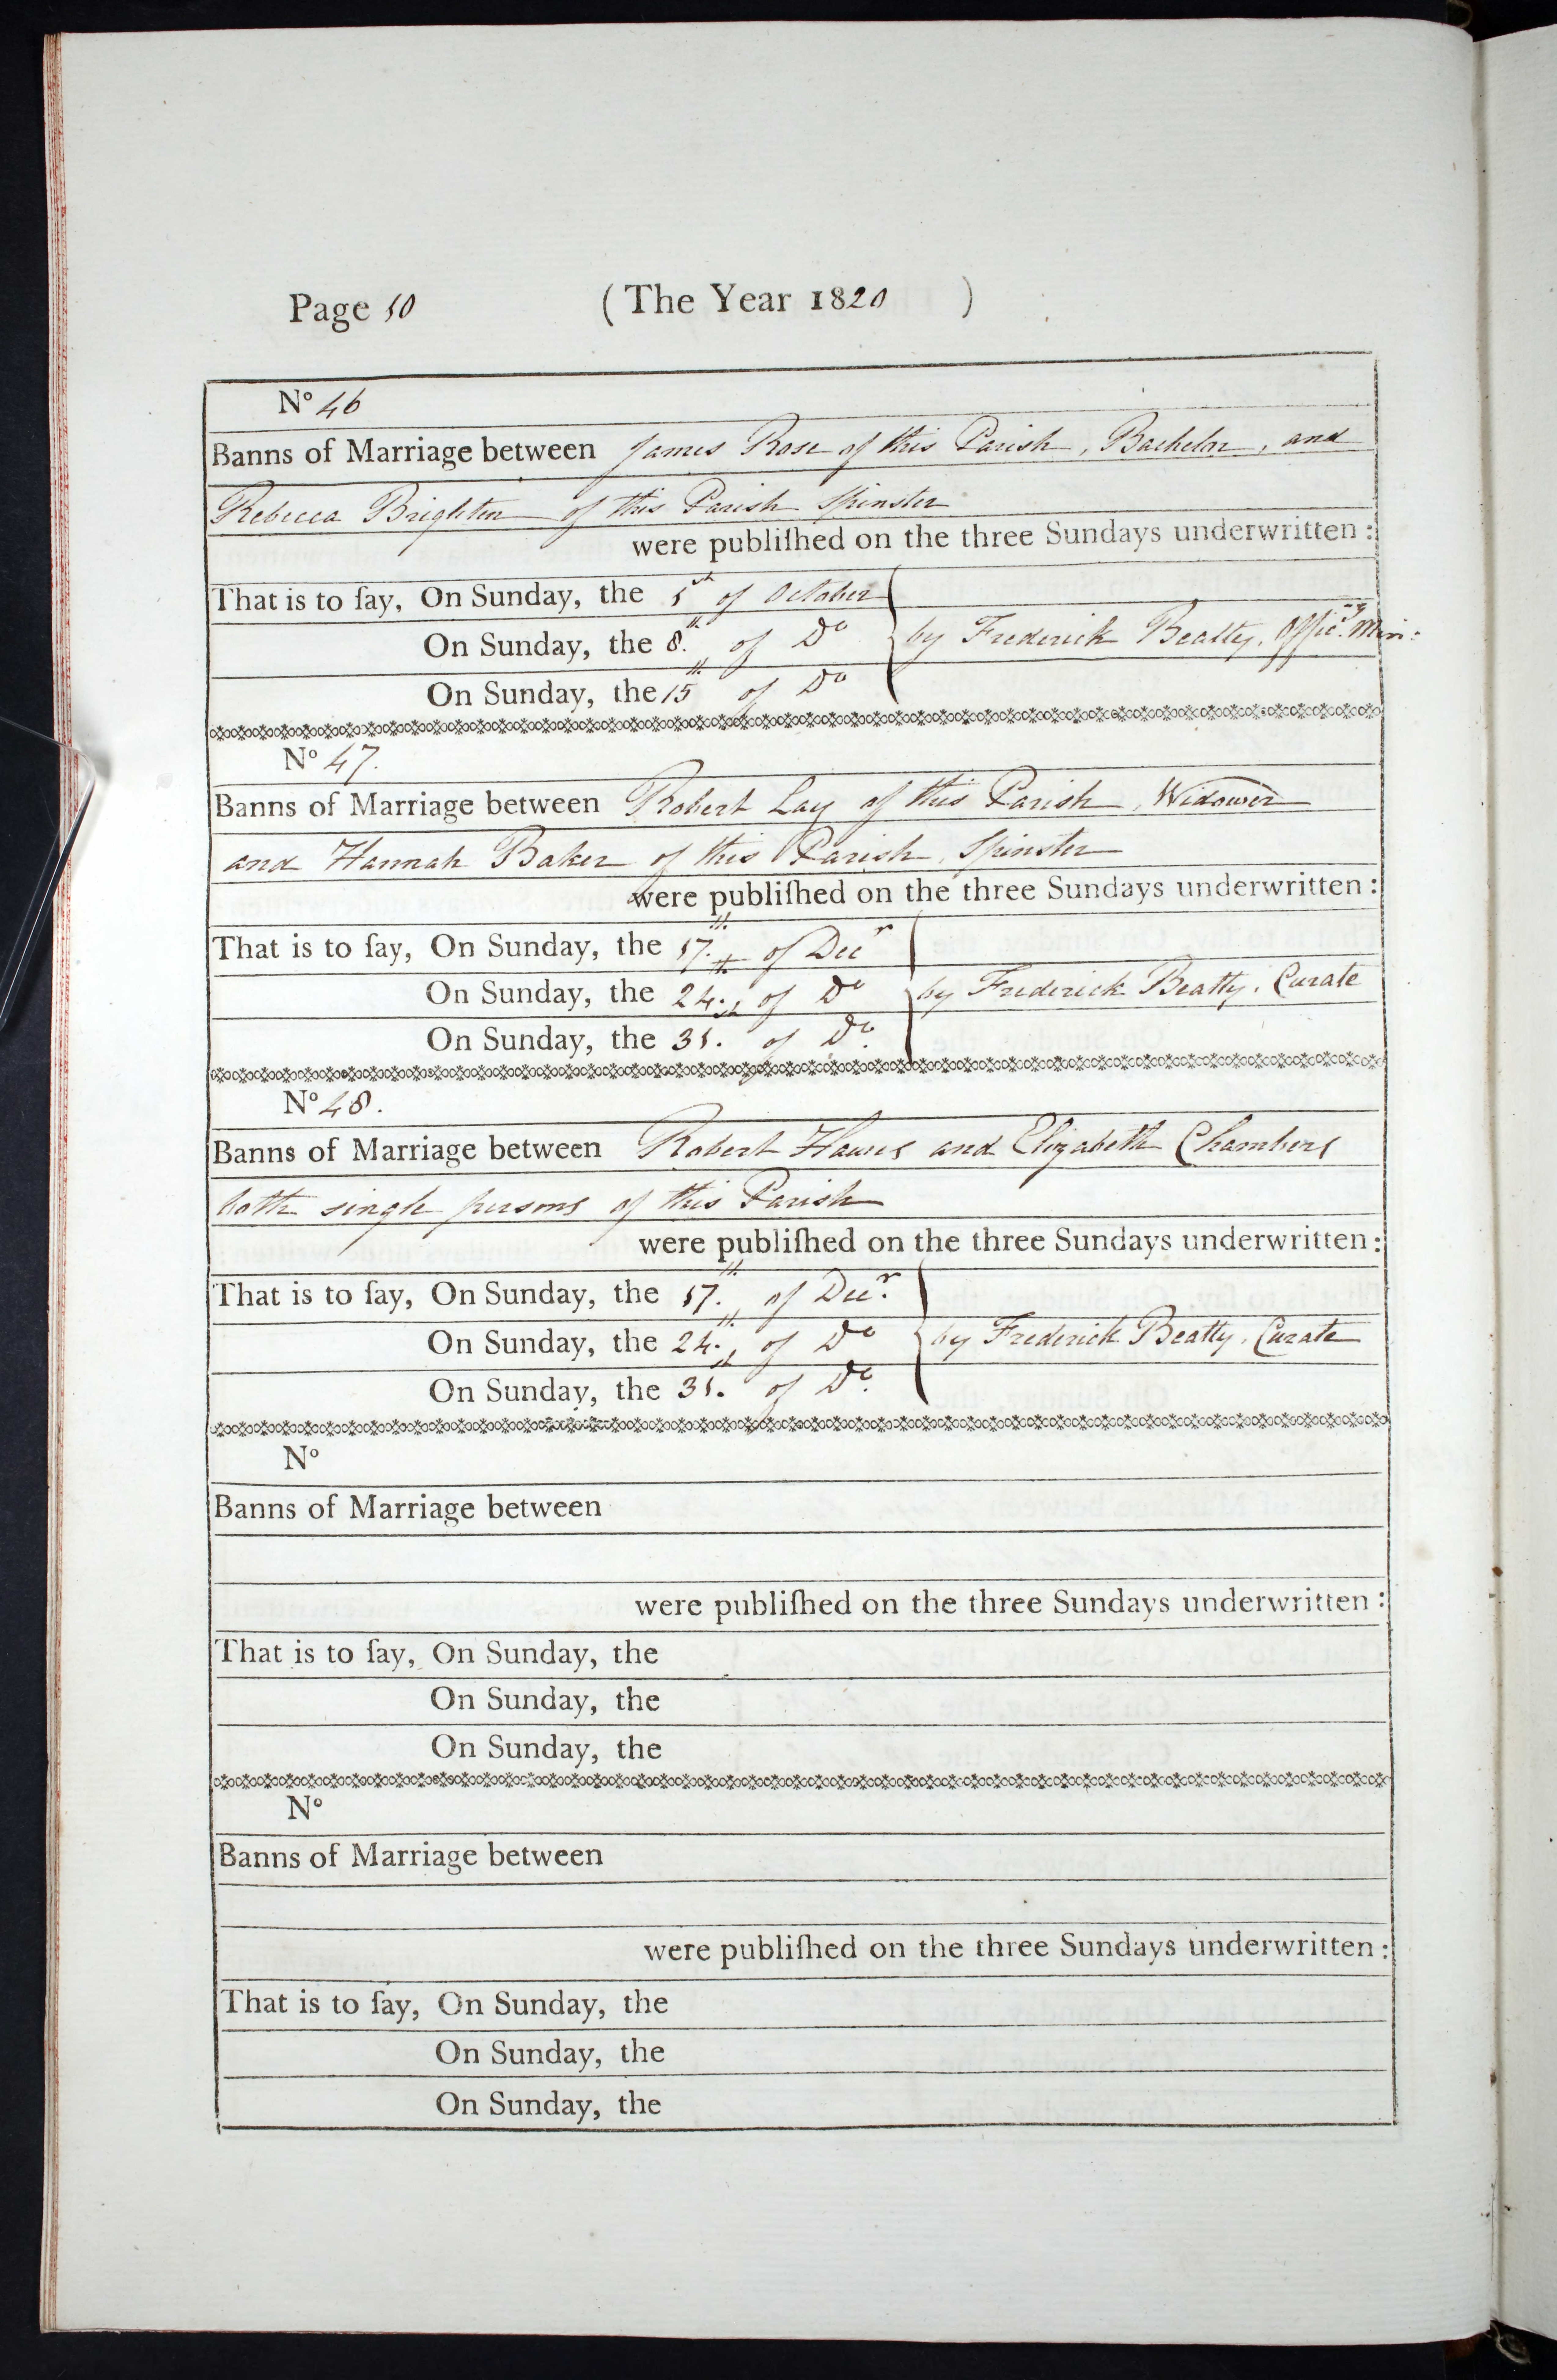 Page 10 (The Year 1820 )
No 46
Banns of Marriage between James Rose of this Parish, Bachelor, and
Rebecca Brighton of this Parish Spinster
were publiſhed on the three Sundays underwritten :
That is to ſay, On Sunday, the 1st of October
On Sunday, the 8.th of Do by Frederick Beatty, Offic.g Min:
On Sunday, the 15th of Do
No 47.
Banns of Marriage between Robert Lay of this Parish, Widower
and Hannah Baker of this Parish, Spinster
were publiſhed on the three Sundays underwritten :
That is to ſay, On Sunday, the 17.th of Decr
On Sunday, the 24.th of Do by Frederick Beatty, Curate
On Sunday, the 31.st of Do.
No 48.
Banns of Marriage between Robert Hawes and Elizabeth Chambers
both single persons of this Parish
were publiſhed on the three Sundays underwritten :
That is to ſay, On Sunday, the 17.th of Decr.
On Sunday, the 24.th of Do by Frederick Beatty, Curate
On Sunday, the 31.st of Do.
No
Banns of Marriage between
were publiſhed on the three Sundays underwritten :
That is to ſay, On Sunday, the
On Sunday, the
On Sunday, the
No
Banns of Marriage between
were publiſhed on the three Sundays underwritten :
That is to ſay, On Sunday, the
On Sunday, the
On Sunday, the